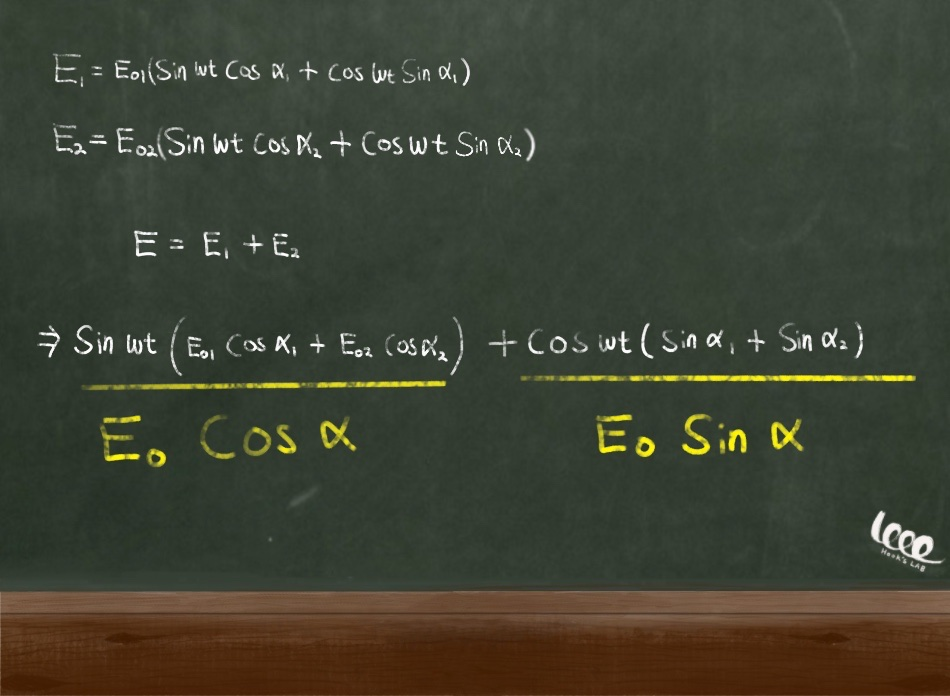 E₁ = E₀₁(Sin wt Cos α₁ + Cos wt Sin α₁)
E₂ = E₀₂(Sin wt Cos α₂ + Cos wt Sin α₂)
E = E₁ + E₂
⇒ Sin wt (E₀₁ Cos α₁ + E₀₂ Cos α₂) + Cos wt (Sin α₁ + Sin α₂)
E₀ Cos α E₀ Sin α
Hook's LAB